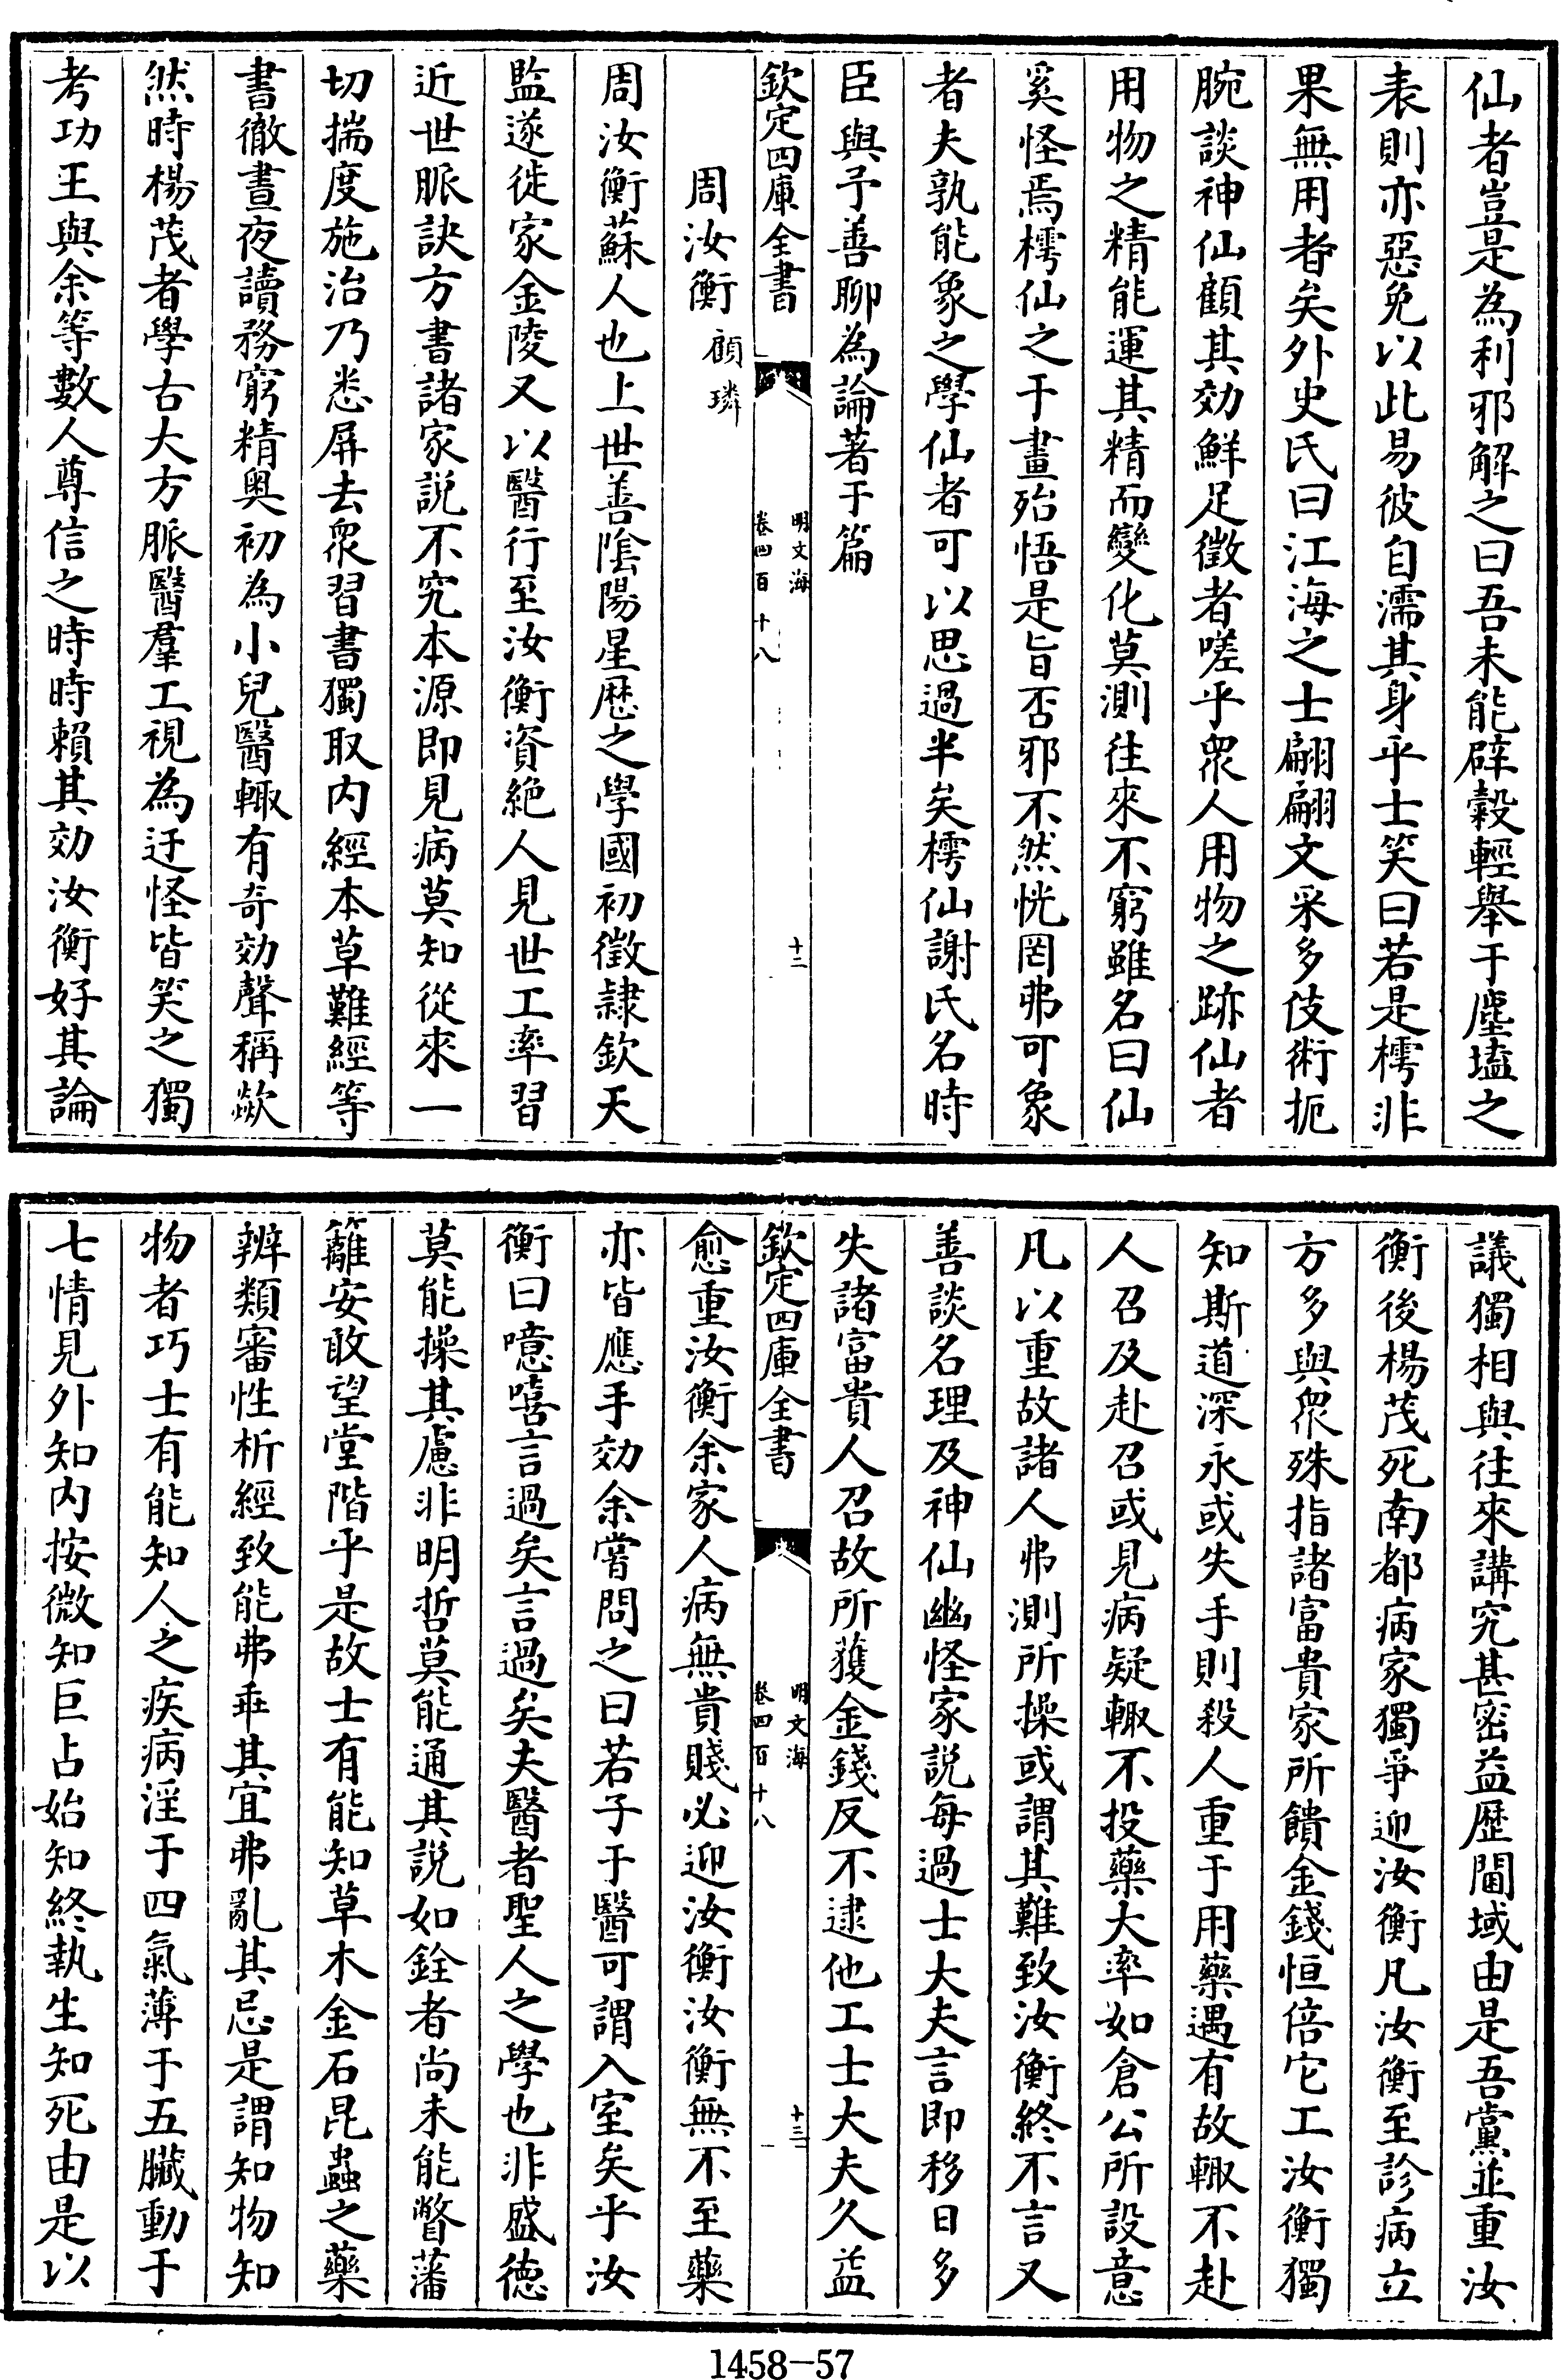 仙者豈是為利邪解之曰吾未能辟穀輕舉于塵壒之
表則亦惡免以此易彼自濡其身乎士笑曰若是樗非
果無用者矣外史氏曰江海之士翩翩文采多伎術扼
腕談神仙顧其効鮮足徵者嗟乎衆人用物之跡仙者
用物之精能運其精而變化莫測往來不窮雖名曰仙
奚怪焉樗仙之于畫殆悟是旨否邪不然恍罔弗可象
者夫孰能象之學仙者可以思過半矣樗仙謝氏名時
臣與予善聊為論著于篇
欽定四庫全書
明文海
卷四百十八
十二
周汝衡 顧璘
周汝衡蘇人也上世善隂陽星歴之學國初徵隷欽天
監遂徙家金陵又以醫行至汝衡資絶人見世工率習
近世脈訣方書諸家説不究本源即見病莫知從來一
切揣度施治乃悉屏去衆習書獨取内經本草難經等
書徹晝夜讀務窮精奥初為小兒醫輙有奇効聲稱歘
然時楊茂者學古大方脈醫羣工視為迂怪皆笑之獨
考功王與余等數人尊信之時時賴其効汝衡好其論
議獨相與往來講究甚密益歴閫域由是吾黨並重汝
衡後楊茂死南都病家獨爭迎汝衡凡汝衡至診病立
方多與衆殊指諸富貴家所饋金錢恒倍它工汝衡獨
知斯道深永或失手則殺人重于用藥遇有故輙不赴
人召及赴召或見病疑輙不投藥大率如倉公所設意
凡以重故諸人弗測所操或謂其難致汝衡終不言又
善談名理及神仙幽怪家説每過士大夫言即移日多
失諸富貴人召故所獲金錢反不逮他工士大夫久益
欽定四庫全書
明文海
卷四百十八
十三
愈重汝衡余家人病無貴賤必迎汝衡汝衡無不至藥
亦皆應手効余嘗問之曰若子于醫可謂入室矣乎汝
衡曰噫嘻言過矣言過矣夫醫者聖人之學也非盛徳
莫能操其慮非明哲莫能通其説如銓者尚未能瞥藩
籬安敢望堂階乎是故士有能知草木金石昆蟲之藥
辨類審性析經致能弗乖其宜弗亂其忌是謂知物知
物者巧士有能知人之疾病淫于四氣薄于五臟動于
七情見外知内按微知巨占始知終執生知死由是以
1458—57